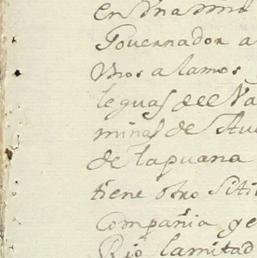 en Una mrd
Gouernador a
Vnos alamos
leguas del Va
minas de
de tapuana
tiene otro Siti
Compañia ge
Rio la mitad